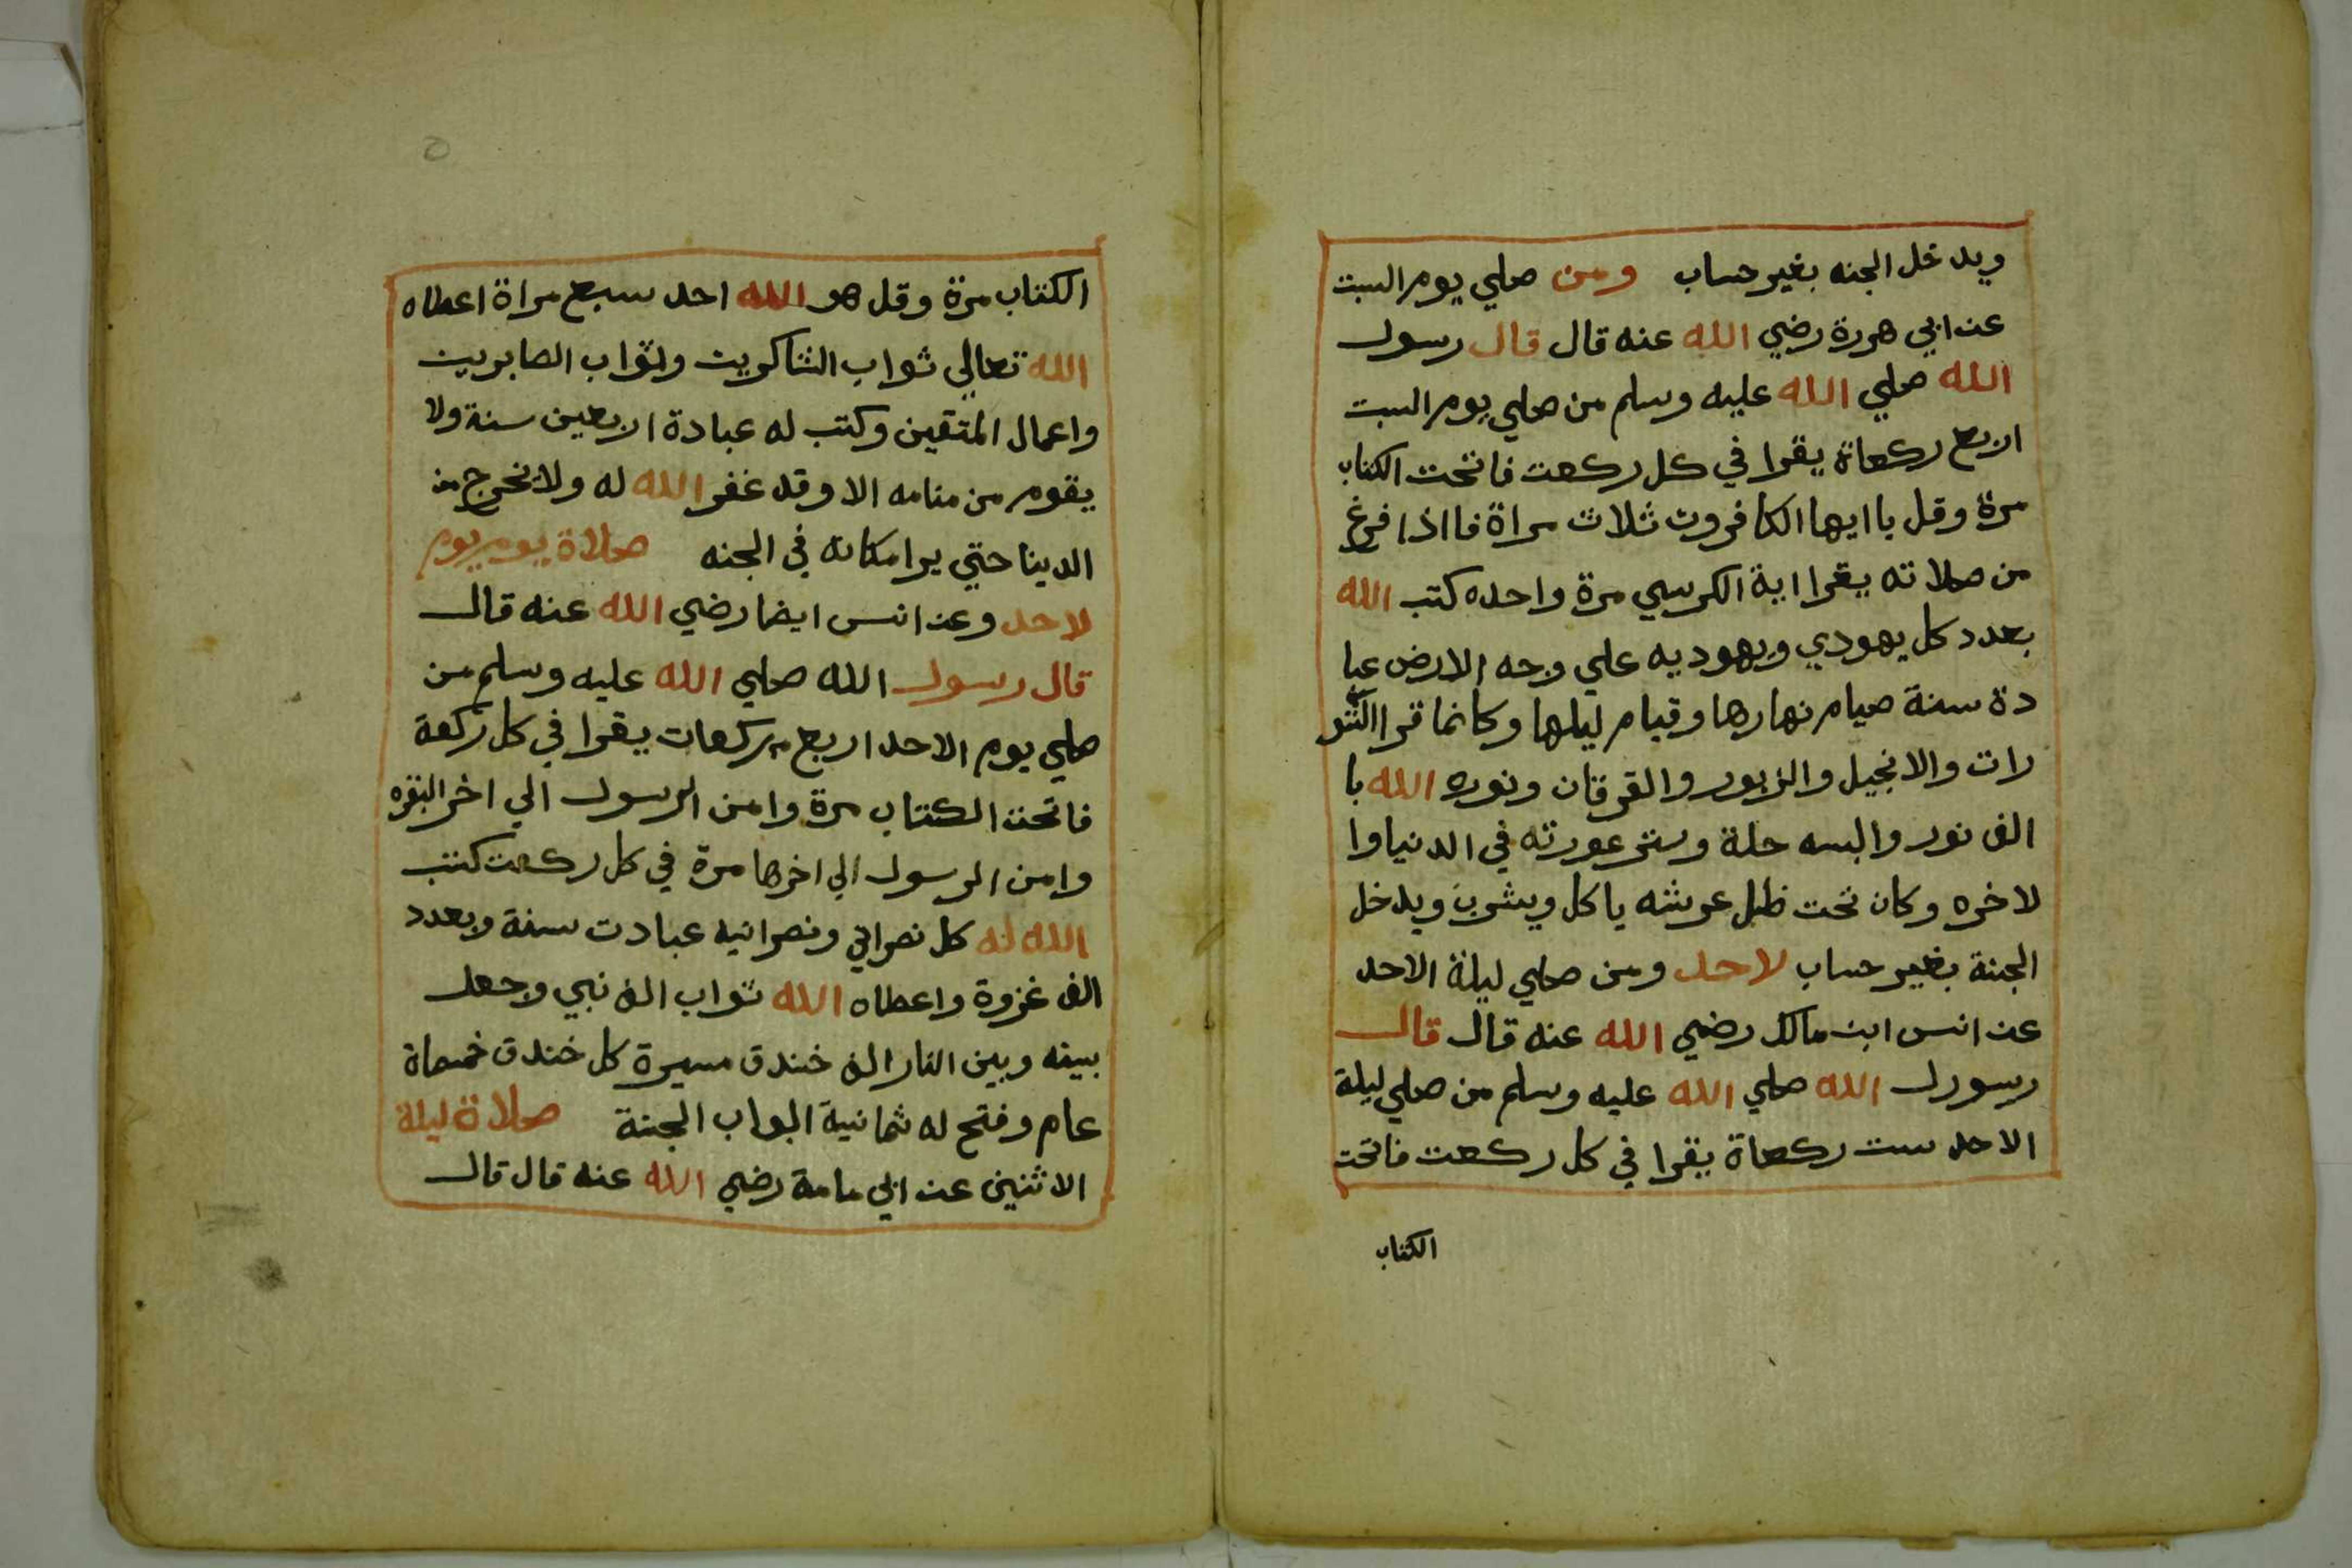 ويدخل الجنه بغير حساب ومن صلي يوم السبت
عن ابي هررة رضي الله عنه قال قال رسول
الله صلي الله عليه وسلم من صلي يوم السبت
اربع ركعاة يقرا في كل ركعت فاتحت الكتاب
مرة وقل ياايها الكافرون ثلاث مراة فااذا فرغ
من صلاته يقرا اية الكرسي مرة واحده كتب الله
بعدد كل يهودي ويهوديه علي وجه الارض عبا
دة سنة صيام نهارها وقيام ليلها وكانما قرا التو
رات والانجيل والزبور والفرقان ونوره الله با
الف نور والبسه حلة وستر عورته في الدنيا وا
لاخره وكان تحت ظل عرشه ياكل ويشرب ويدخل
الجنة بغير حساب لاحد ومن صلي ليلة الاحد
عن انس ابن مالك رضي الله عنه قال قال
رسورل الله صلي الله عليه وسلم من صلي ليلة
الاحد ست ركعاة يقرا في كل ركعت فاتحت
الكتاب
٥
الكتاب مرة وقل هو الله احد سبع مراة اعطاه
الله تعالي ثواب الشاكرين وثواب الصابرين
واعمال المتقين وكتب له عبادة اربعين سنة ولا
يقوم من منامه الا وقد غفر الله له ولا يخرج من
الدينا حتي يرا مكانه في الجنه صلاة يوم يوم
لاحد وعن انس ايضا رضي الله عنه قال
قال رسول الله صلي الله عليه وسلم من
صلي يوم الاحد اربع ركعات يقرا في كل ركعة
فاتحت الكتاب مرة وامن الرسول الي اخر البقره
وامن الرسول الي اخرها مرة في كل ركعت كتب
الله له كل نصراني ونصرانيه عبادت سنة وبعدد
الف غزوة واعطاه الله ثواب الف نبي وجعل
بينه وبين النار الف خندق مسيرة كل خندق خمسماة
عام وفتح له ثمانية ابواب الجنة صلاة ليلة
الاثنين عن ابي مامة رضي الله عنه قال قال